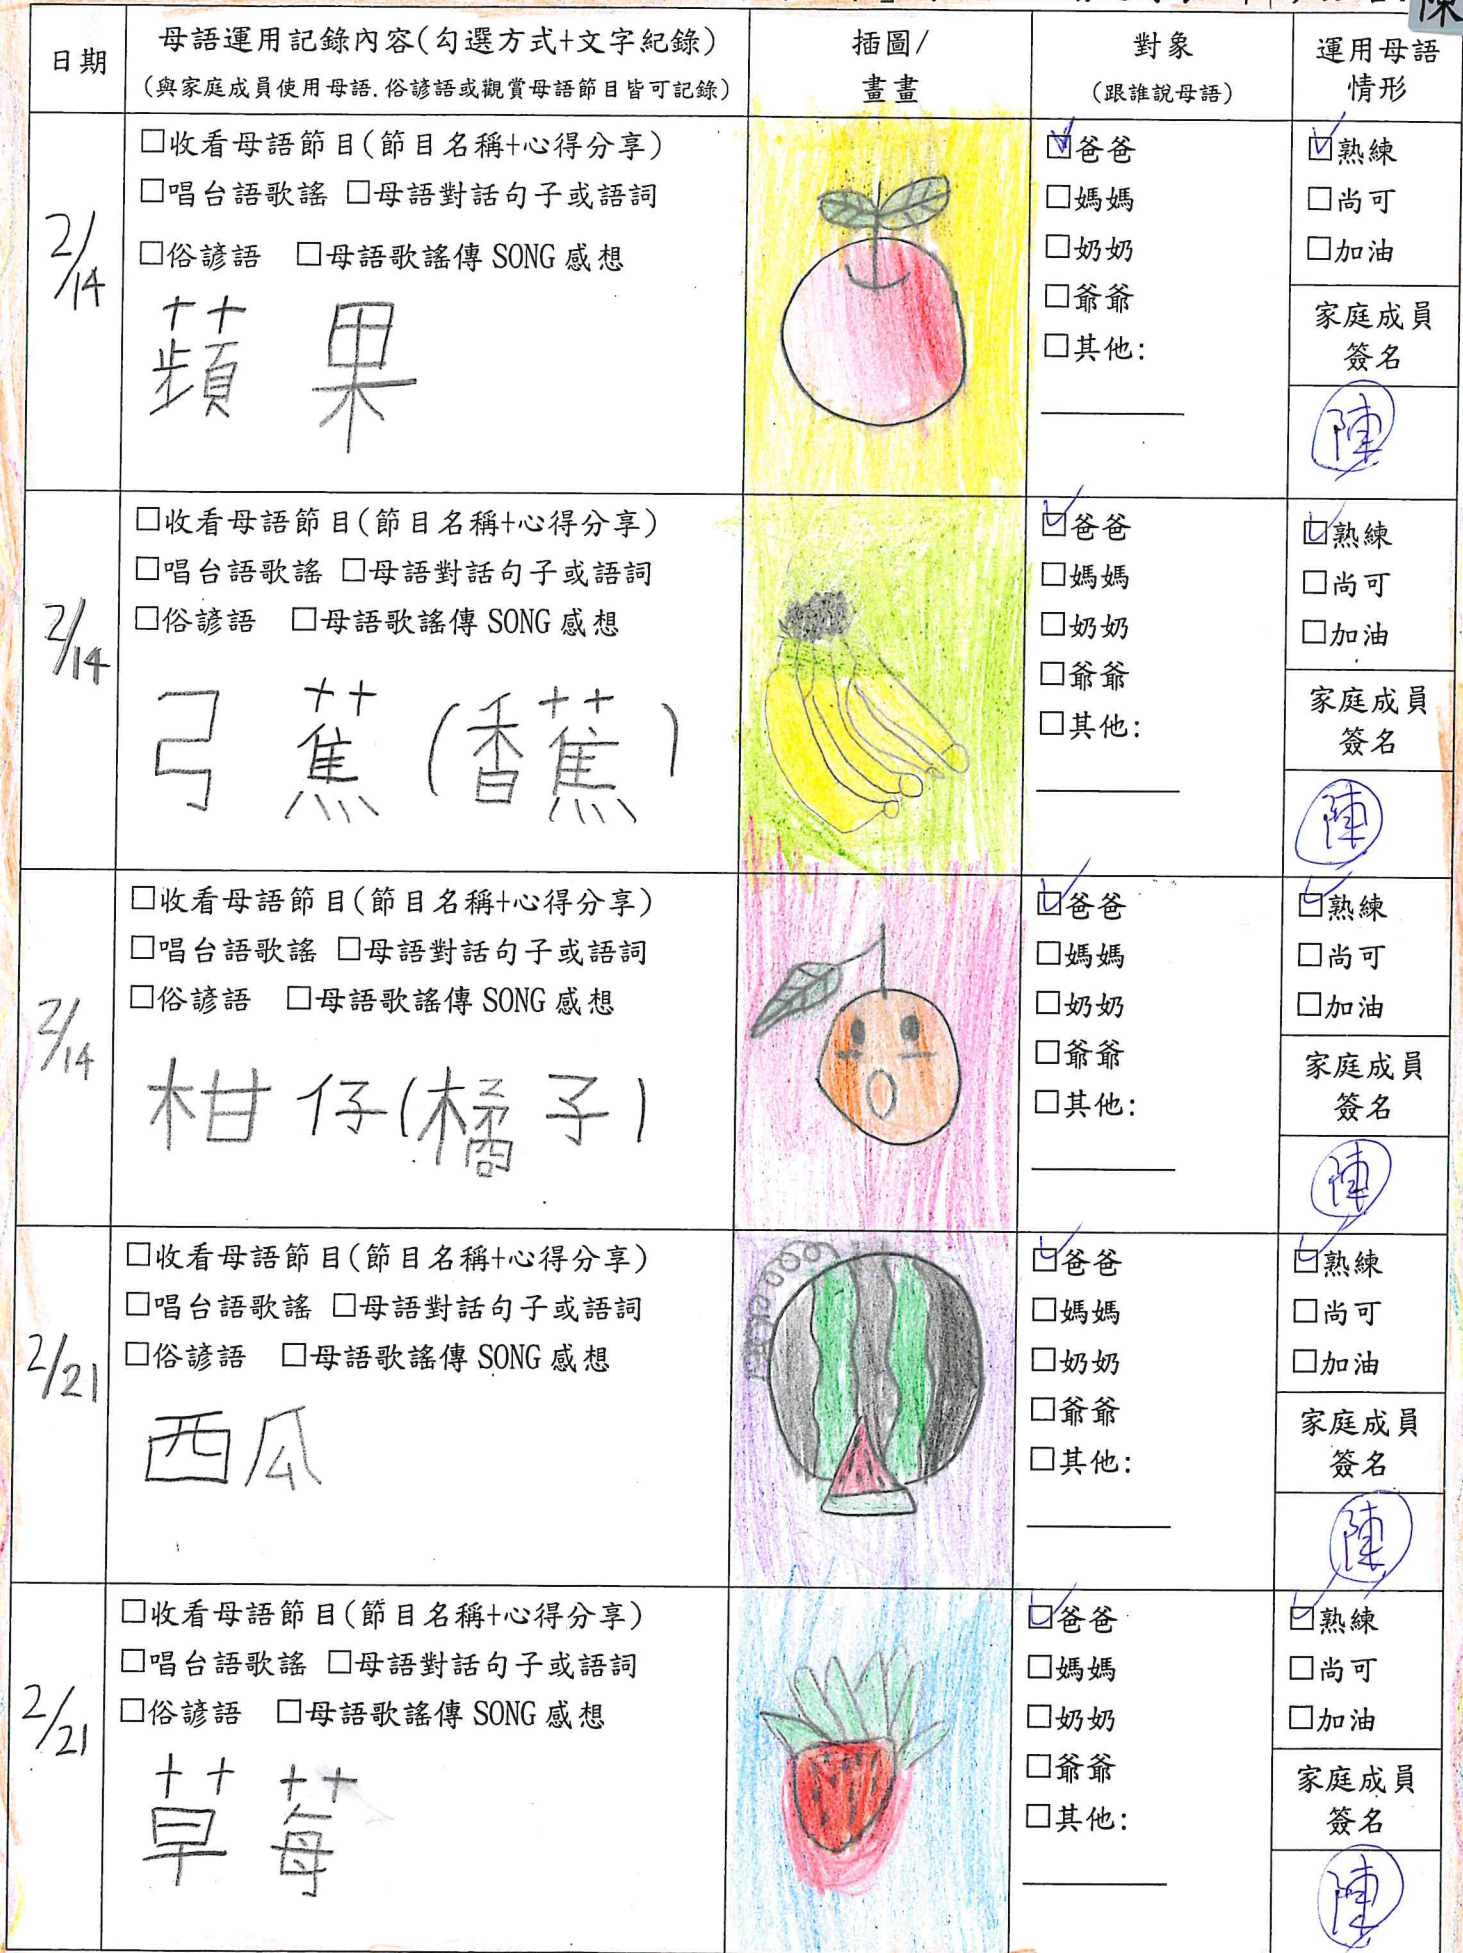 陳
日期
母語運用記錄內容(勾選方式+文字紀錄)
(與家庭成員使用母語.俗諺語或觀賞母語節目皆可記錄)
插圖/
畫畫
對象
(跟誰說母語)
運用母語
情形
2/14
□收看母語節目(節目名稱+心得分享)
□唱台語歌謠 □母語對話句子或語詞
□俗諺語 □母語歌謠傳 SONG 感想
蘋果
☑爸爸
□媽媽
□奶奶
□爺爺
□其他:
☑熟練
□尚可
□加油
家庭成員
簽名
陳
2/14
□收看母語節目(節目名稱+心得分享)
□唱台語歌謠 □母語對話句子或語詞
□俗諺語 □母語歌謠傳 SONG 感想
弓蕉(香蕉)
☑爸爸
□媽媽
□奶奶
□爺爺
□其他:
☑熟練
□尚可
□加油
家庭成員
簽名
陳
2/14
□收看母語節目(節目名稱+心得分享)
□唱台語歌謠 □母語對話句子或語詞
□俗諺語 □母語歌謠傳 SONG 感想
柑仔(橘子)
☑爸爸
□媽媽
□奶奶
□爺爺
□其他:
☑熟練
□尚可
□加油
家庭成員
簽名
陳
2/21
□收看母語節目(節目名稱+心得分享)
□唱台語歌謠 □母語對話句子或語詞
□俗諺語 □母語歌謠傳 SONG 感想
西瓜
☑爸爸
□媽媽
□奶奶
□爺爺
□其他:
☑熟練
□尚可
□加油
家庭成員
簽名
陳
2/21
□收看母語節目(節目名稱+心得分享)
□唱台語歌謠 □母語對話句子或語詞
□俗諺語 □母語歌謠傳 SONG 感想
草莓
☑爸爸
□媽媽
□奶奶
□爺爺
□其他:
☑熟練
□尚可
□加油
家庭成員
簽名
陳